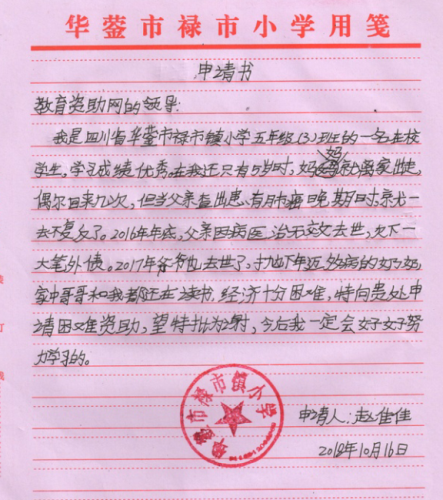 华蓥市禄市小学用笺
申请书
教育资助网的领导:
我是四川省华蓥市禄市镇小学五年级(3)班的一名在校
学生,学习成绩优秀。在我还只有5岁时,妈妈就离家出走,
偶尔回来几次,但当父亲看出患有肺癌晚期时,亲就一
去不复反了。2016年年底,父亲因病医治无效去世,欠下一
大笔外债。2017年爷爷也去世了,扔下年迈多病的奶奶,
家中哥哥和我都还在读书,经济十分困难,特向贵处申
请困难资助,望特批为谢,今后我一定会好好努
力学习的。
申请人:赵佳佳
2018年10月16日
华蓥市禄市镇小学